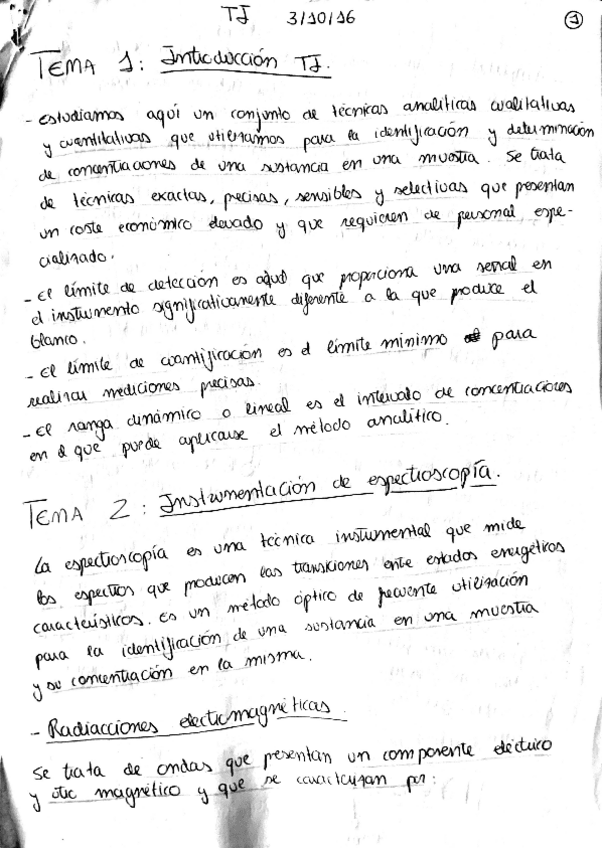 TI 3/10/16 1
TEMA 1: Introducción TI.
- estudiamos aquí un conjunto de técnicas analíticas cualitativas
y cuantitativas que utilizamos para la identificación y determinación
de concentraciones de una sustancia en una muestra. Se trata
de técnicas exactas, precisas, sensibles y selectivas que presentan
un coste económico elevado y que requieren de personal espe-
cializado.
- El límite de detección es aquel que proporciona una señal en
el instrumento significativamente diferente a la que produce el
blanco.
- El límite de cuantificación es el límite mínimo para
realizar mediciones precisas.
- El rango dinámico o lineal es el intervalo de concentraciones
en el que puede aplicarse el método analítico.
TEMA 2: Instrumentación de espectroscopía.
La espectroscopía es una técnica instrumental que mide
los espectros que producen las transiciones entre estados energéticos
característicos. Es un método óptico de frecuente utilización
para la identificación de una sustancia en una muestra
y su concentración en la misma.
- Radiacciones electromagnéticas.
Se trata de ondas que presentan un componente eléctrico
y otro magnético y que se caracterizan por: